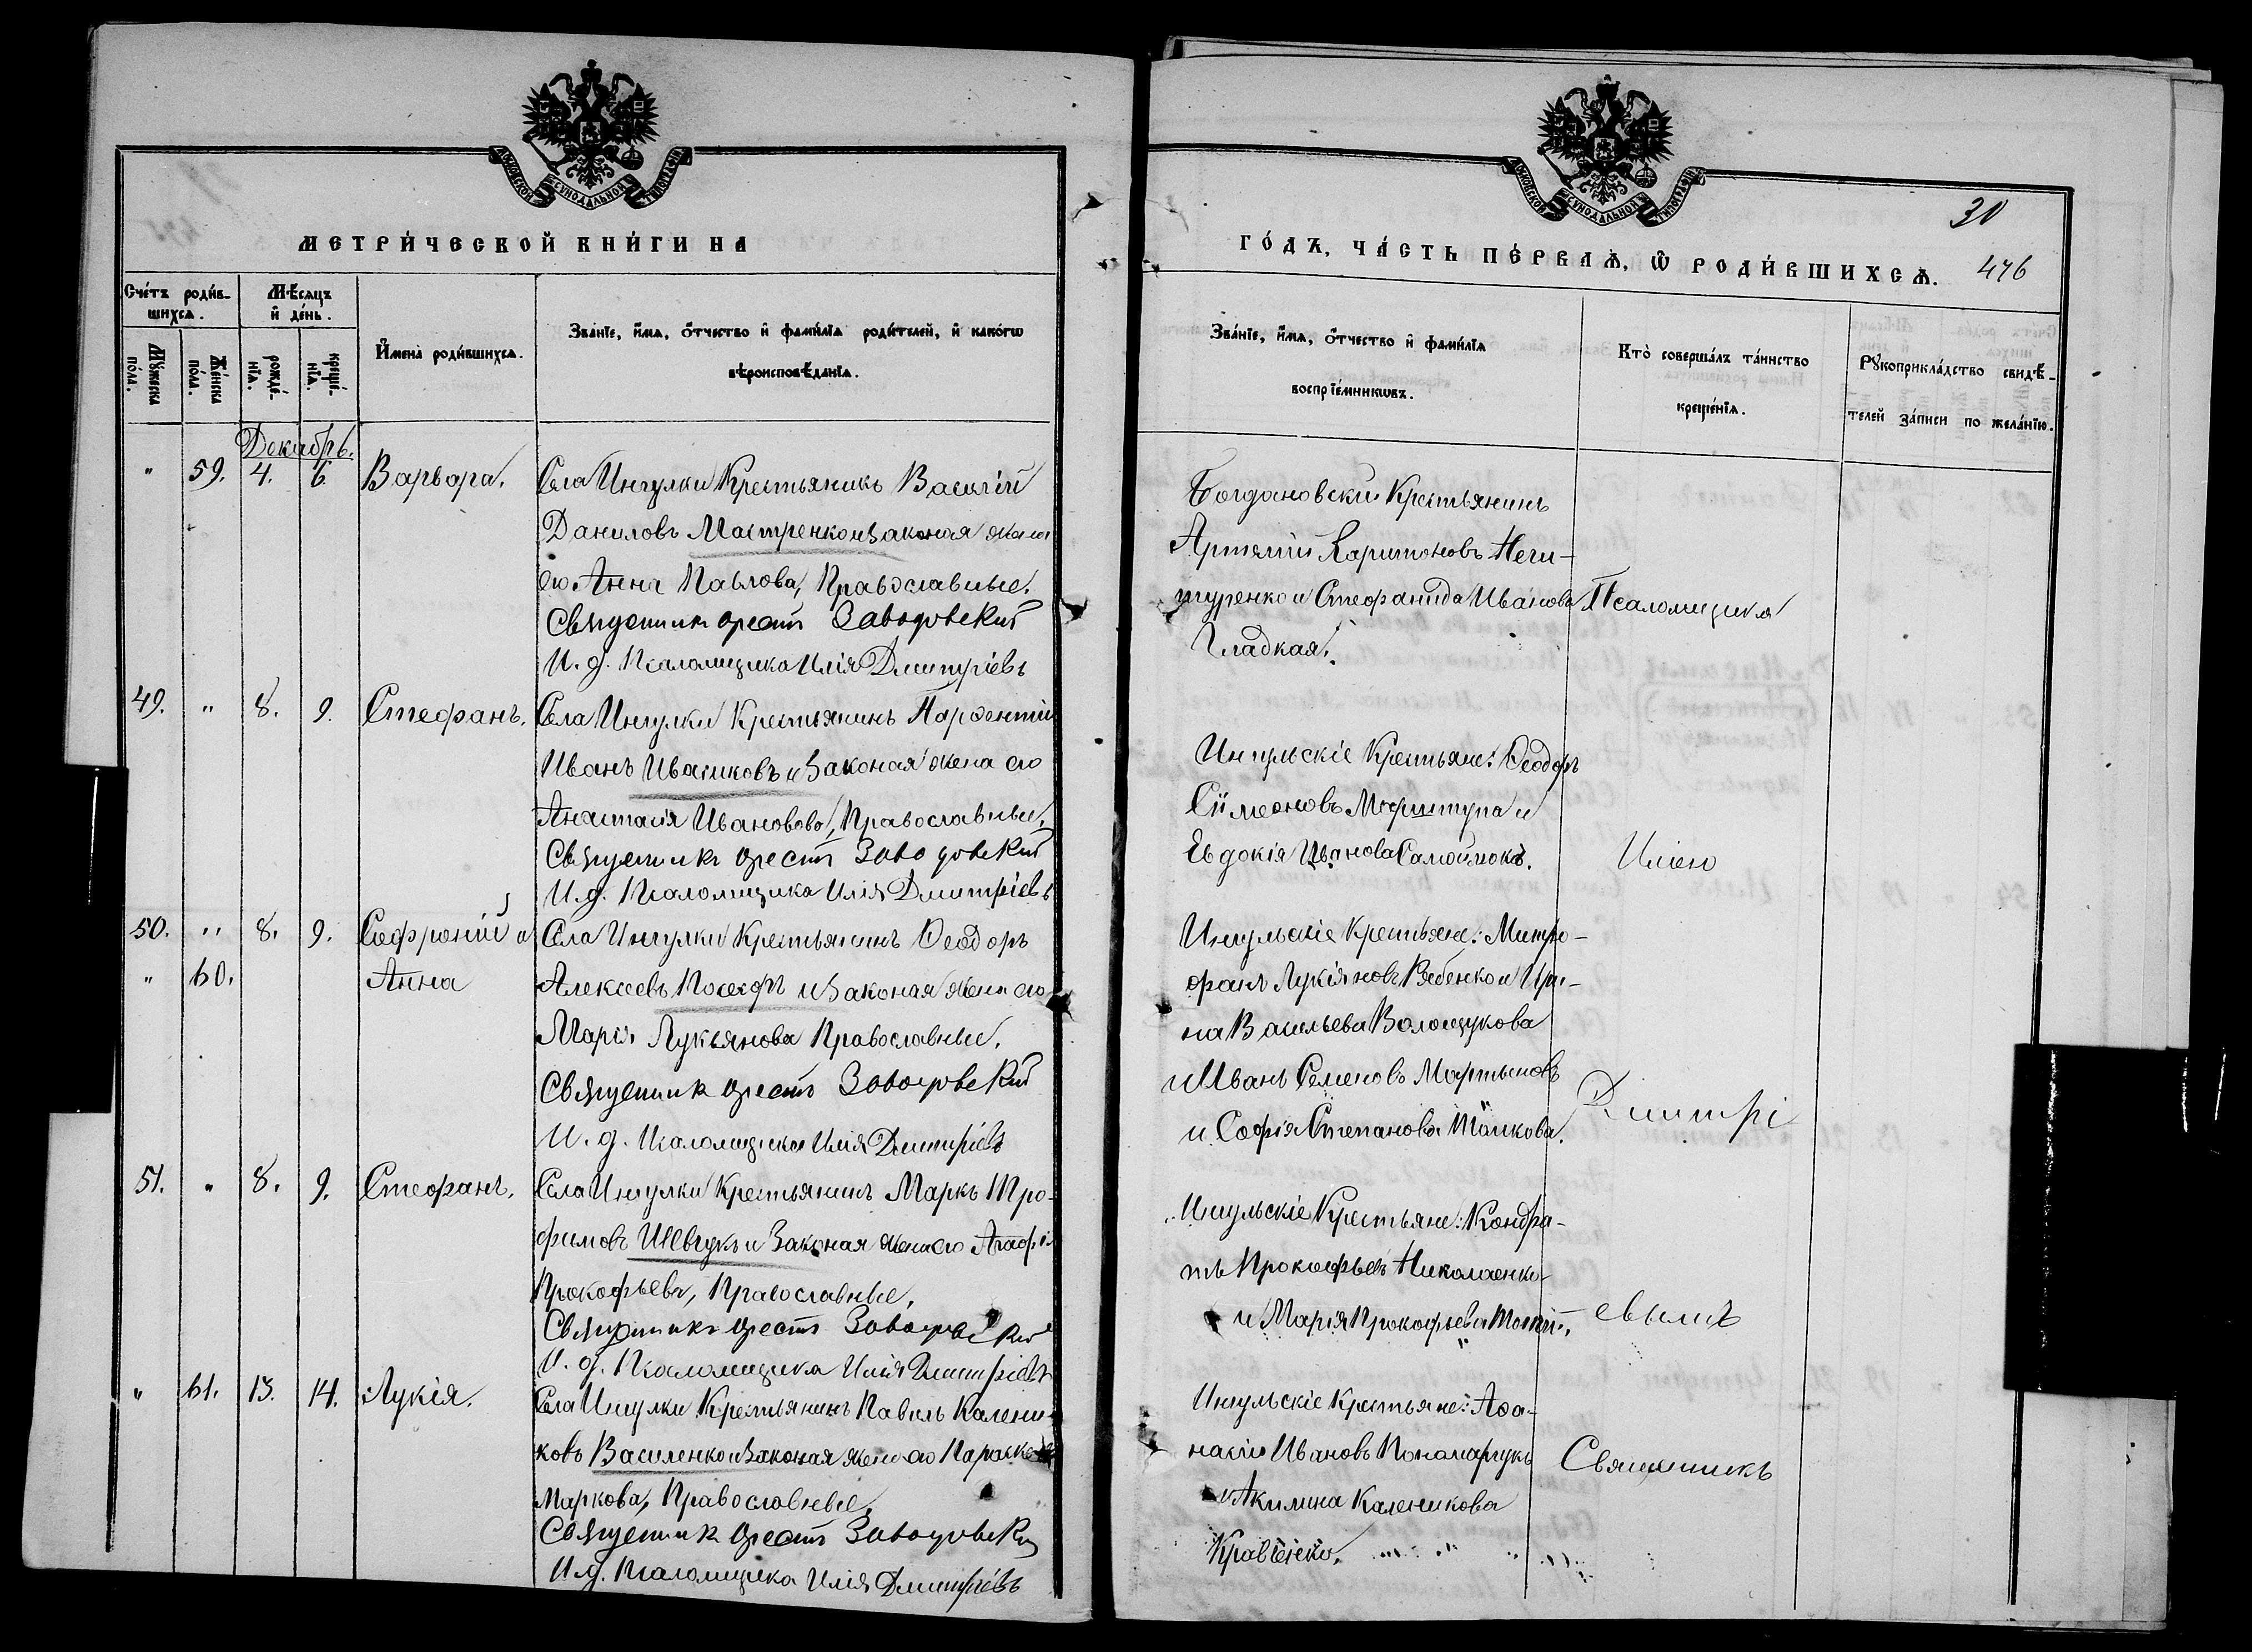 МОСКОВСКОЙ СѴНОДАЛЬНОЙ ТИПОГРАФІИ
МЕТРИ́ЧЕСКОЙ КНИ́ГИ НА
Сче́тъ роди́в-
шихсѧ.
Мѣсяцъ
и҆ де́нь.
И҆мена̀ роди́вшихсѧ.
Зва́нїе, и҆́мѧ, ѻ҆́тчество и҆ фами́лїѧ роди́телей, и҆ како́гѡ
вѣроисповѣ́данїѧ.
Мꙋ́жеска
по́ла.
Же́нска
по́ла.
рожде́-
нїѧ.
креще́-
нїѧ.
Декабрь.
" 59. 4. 6. Варвара. Села Ингулки Крестьянинъ Василій
Даниловъ Мастренко и законая жена
его Анна Павлова, Православные.
Священникъ Орестъ Заводовскій
И. д. Псаломщика Илія Дмитріевъ
49. " 8. 9. Стефанъ. Села Ингулки Крестьянинъ Парфентій
Иванъ Ивашковъ и законая жена его
Анастасія Ивановово, Православные.
Священникъ Орестъ Заводовскій
И. д. Псаломщика Илія Дмитріевъ
50. " 8. 9. Софроній и Села Ингулки Крестьянинъ Ѳеодоръ
" 60. Анна Алексеевъ и законая жена его
Марія Лукьянова Православные.
Священникъ Орестъ Заводовскій
И. д. Псаломщика Илія Дмитріевъ
51. " 8. 9. Стефанъ. Села Ингулки Крестьянинъ Маркъ Тро-
фимовъ Шевчукъ и Законая жена его Агафія
Прокофьева, Православные.
Священникъ Орестъ Заводовскій
И. д. Псаломщика Илія Дмитріевъ
" 61. 13. 14. Лукія. Села Ингулки Крестьянинъ Павелъ Калени-
ковъ Василенко и законая жена его Параскева
Маркова, Православные.
Священникъ Орестъ Заводовскій
И. д. Псаломщика Илія Дмитріевъ
МОСКОВСКОЙ СѴНОДАЛЬНОЙ ТИПОГРАФІИ
30
ГО́ДЪ, ЧА́СТЬ ПЕ́РВАѦ, Ѡ҆ РОДИ́ВШИХСѦ. 476
Зва́нїе, и҆́мѧ, ѻ҆́тчество и҆ фами́лїѧ
воспрїе́мникѡвъ.
Кто̀ соверша́лъ та́инство
креще́нїѧ.
Рꙋкоприкла́дство свидѣ́-
телей за́писи по жела́нїю.
Богдановски Крестьянинъ
Артемій Харитоновъ Неги-
туренко и Стефанида Иванова Псаломщика
Гладкая.
Ингульскіе Крестьяне: Ѳеодоръ
Сѵмеоновъ и
Евдокія Иванова Самойлюкъ. Иліею
Ингульскіе Крестьяне: Митро-
фанъ Лукіяновъ Рябенко и Ири-
на Васильева Волощукова
и Иванъ Семеновъ Мартыновъ
и Софія Степанова Дмитрі
Ингульскіе Крестьяне: Кондра-
тъ Прокофьевъ Николаенко
и Марія Прокофьева евымъ
Ингульскіе Крестьяне: Аѳа-
насій Ивановъ Пономарчукъ Священникъ
и Акилина Каленикова